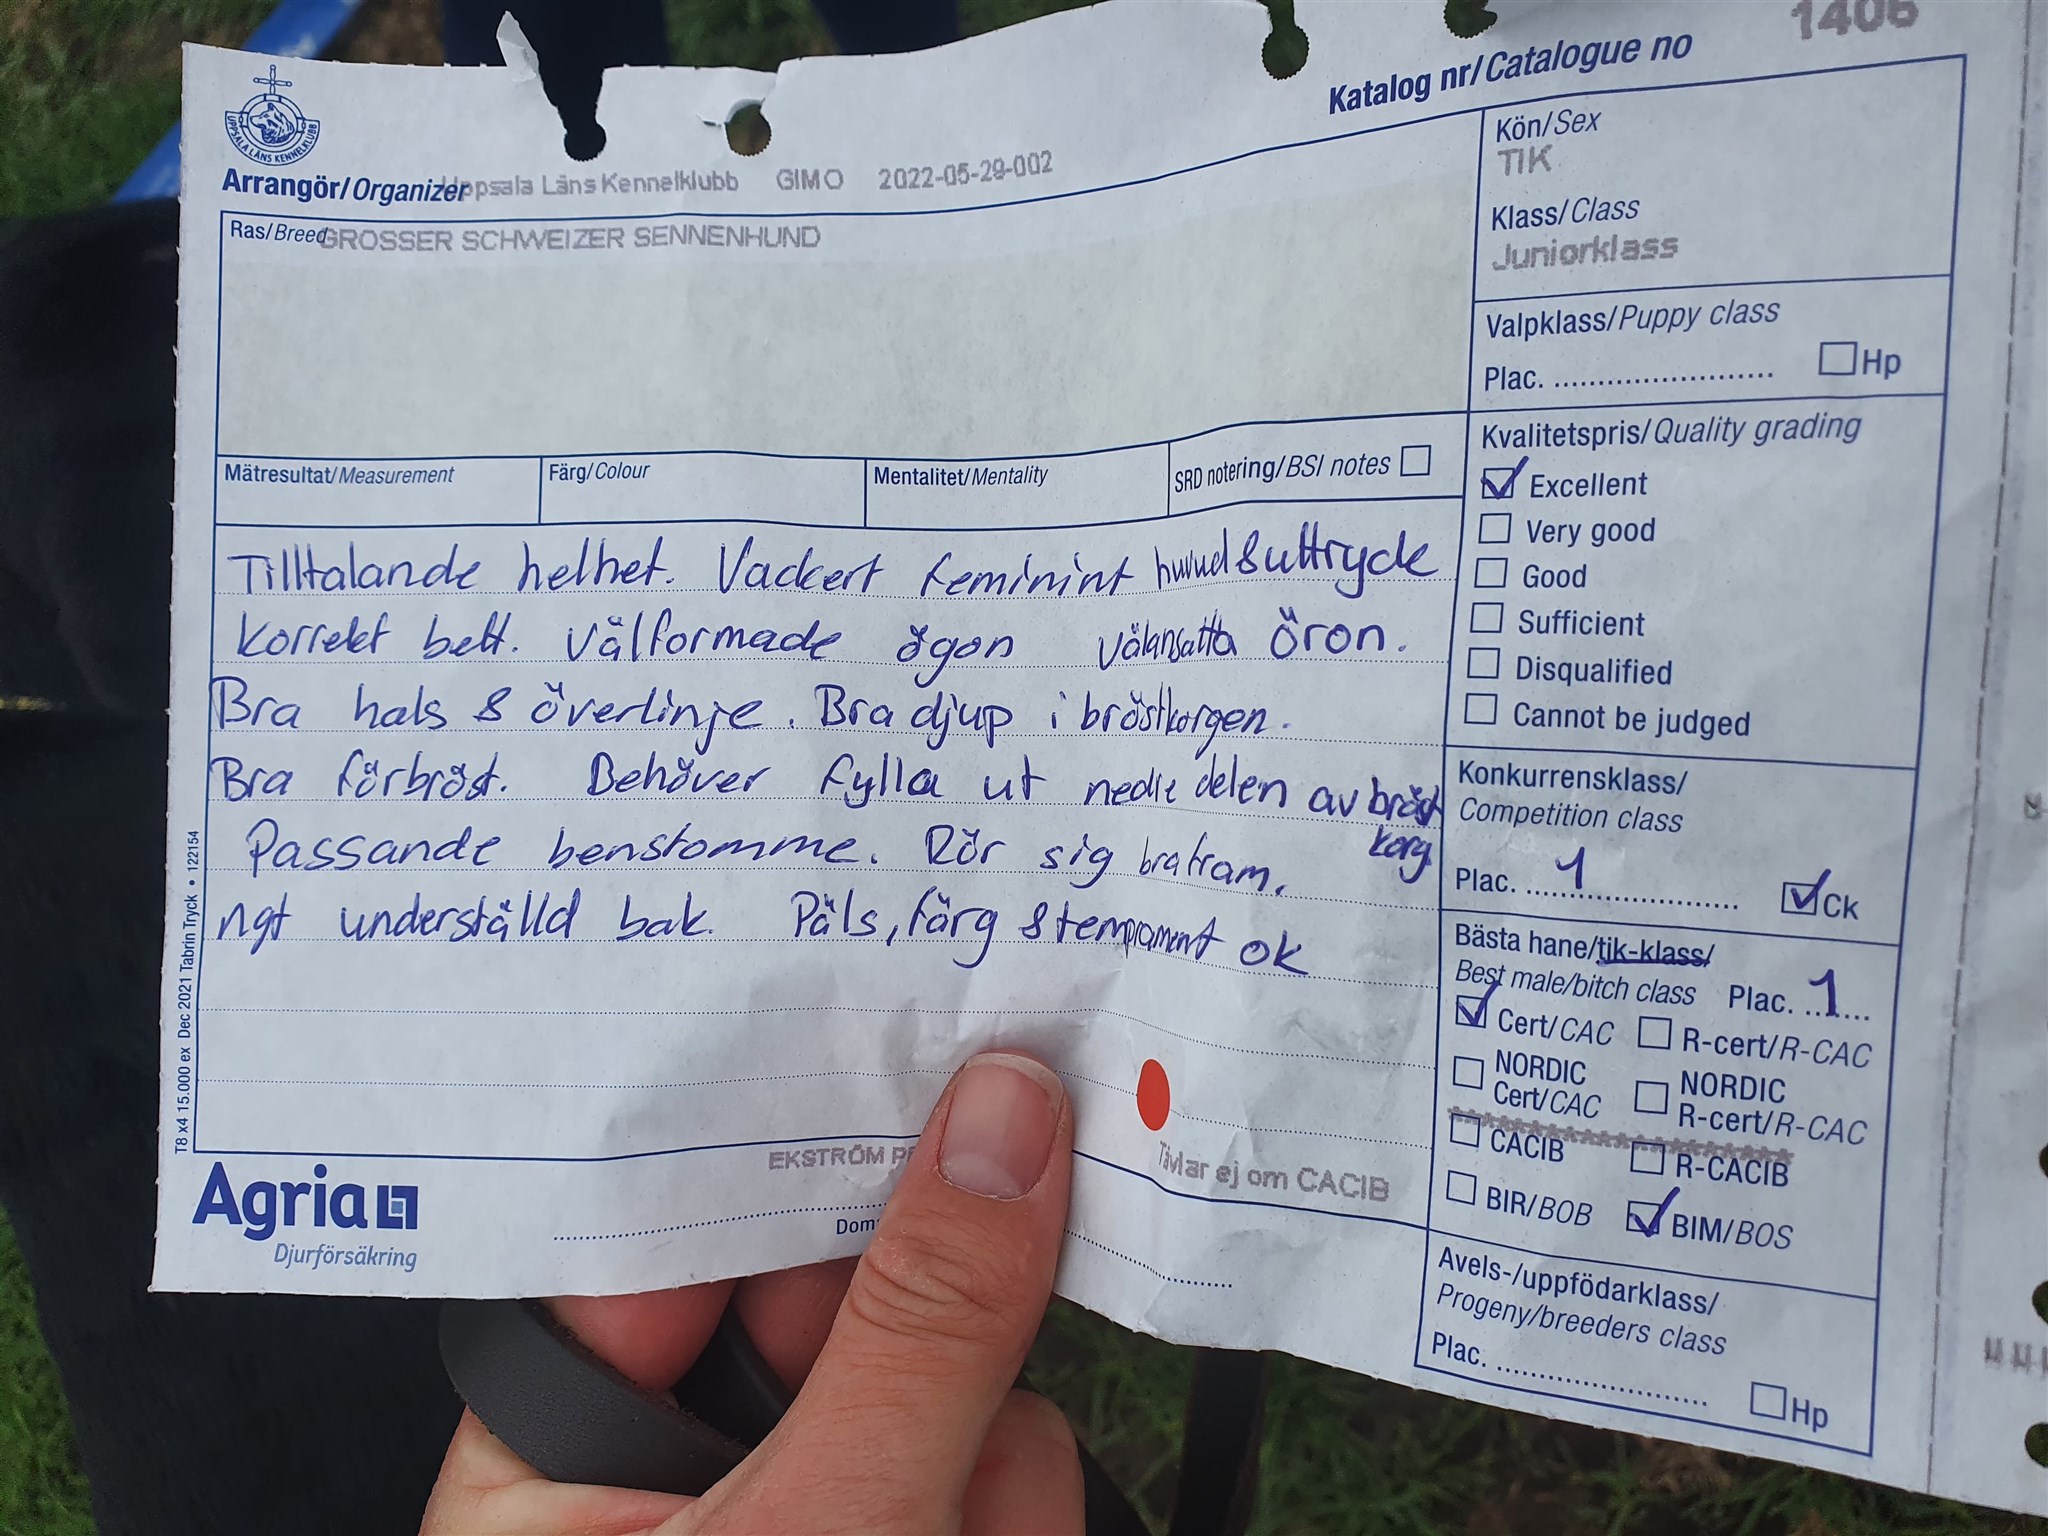 Katalog nr/Catalogue no 1406
UPPSALA LÄNS KENNELKLUBB
Arrangör/Organizer Uppsala Läns Kennelklubb GIMO 2022-05-29-002
Ras/Breed GROSSER SCHWEIZER SENNENHUND
Mätresultat/Measurement
Färg/Colour
Mentalitet/Mentality
SRD notering/BSI notes
Tilltalande helhet. Vackert feminint huvud & uttryck
Korrekt bett. Välformade ögon välansatta öron.
Bra hals & överlinje. Bra djup i bröstkorgen.
Bra förbröst. Behöver fylla ut nedre delen av bröst
korg
Passande benstomme. Rör sig bra fram.
ngt underställd bak. Päls, färg & temprament ok
EKSTRÖM
Tävlar ej om CACIB
Agria
Djurförsäkring
T8 x4 15.000 ex Dec 2021 Tabrin Tryck • 122154
Kön/Sex
TIK
Klass/Class
Juniorklass
Valpklass/Puppy class
Plac. Hp
Kvalitetspris/Quality grading
Excellent
Very good
Good
Sufficient
Disqualified
Cannot be judged
Konkurrensklass/
Competition class
Plac. 1 Ck
Bästa hane/tik-klass/
Best male/bitch class Plac. 1
Cert/CAC R-cert/R-CAC
NORDIC Cert/CAC NORDIC R-cert/R-CAC
CACIB R-CACIB
BIR/BOB BIM/BOS
Avels-/uppfödarklass/
Progeny/breeders class
Plac. Hp